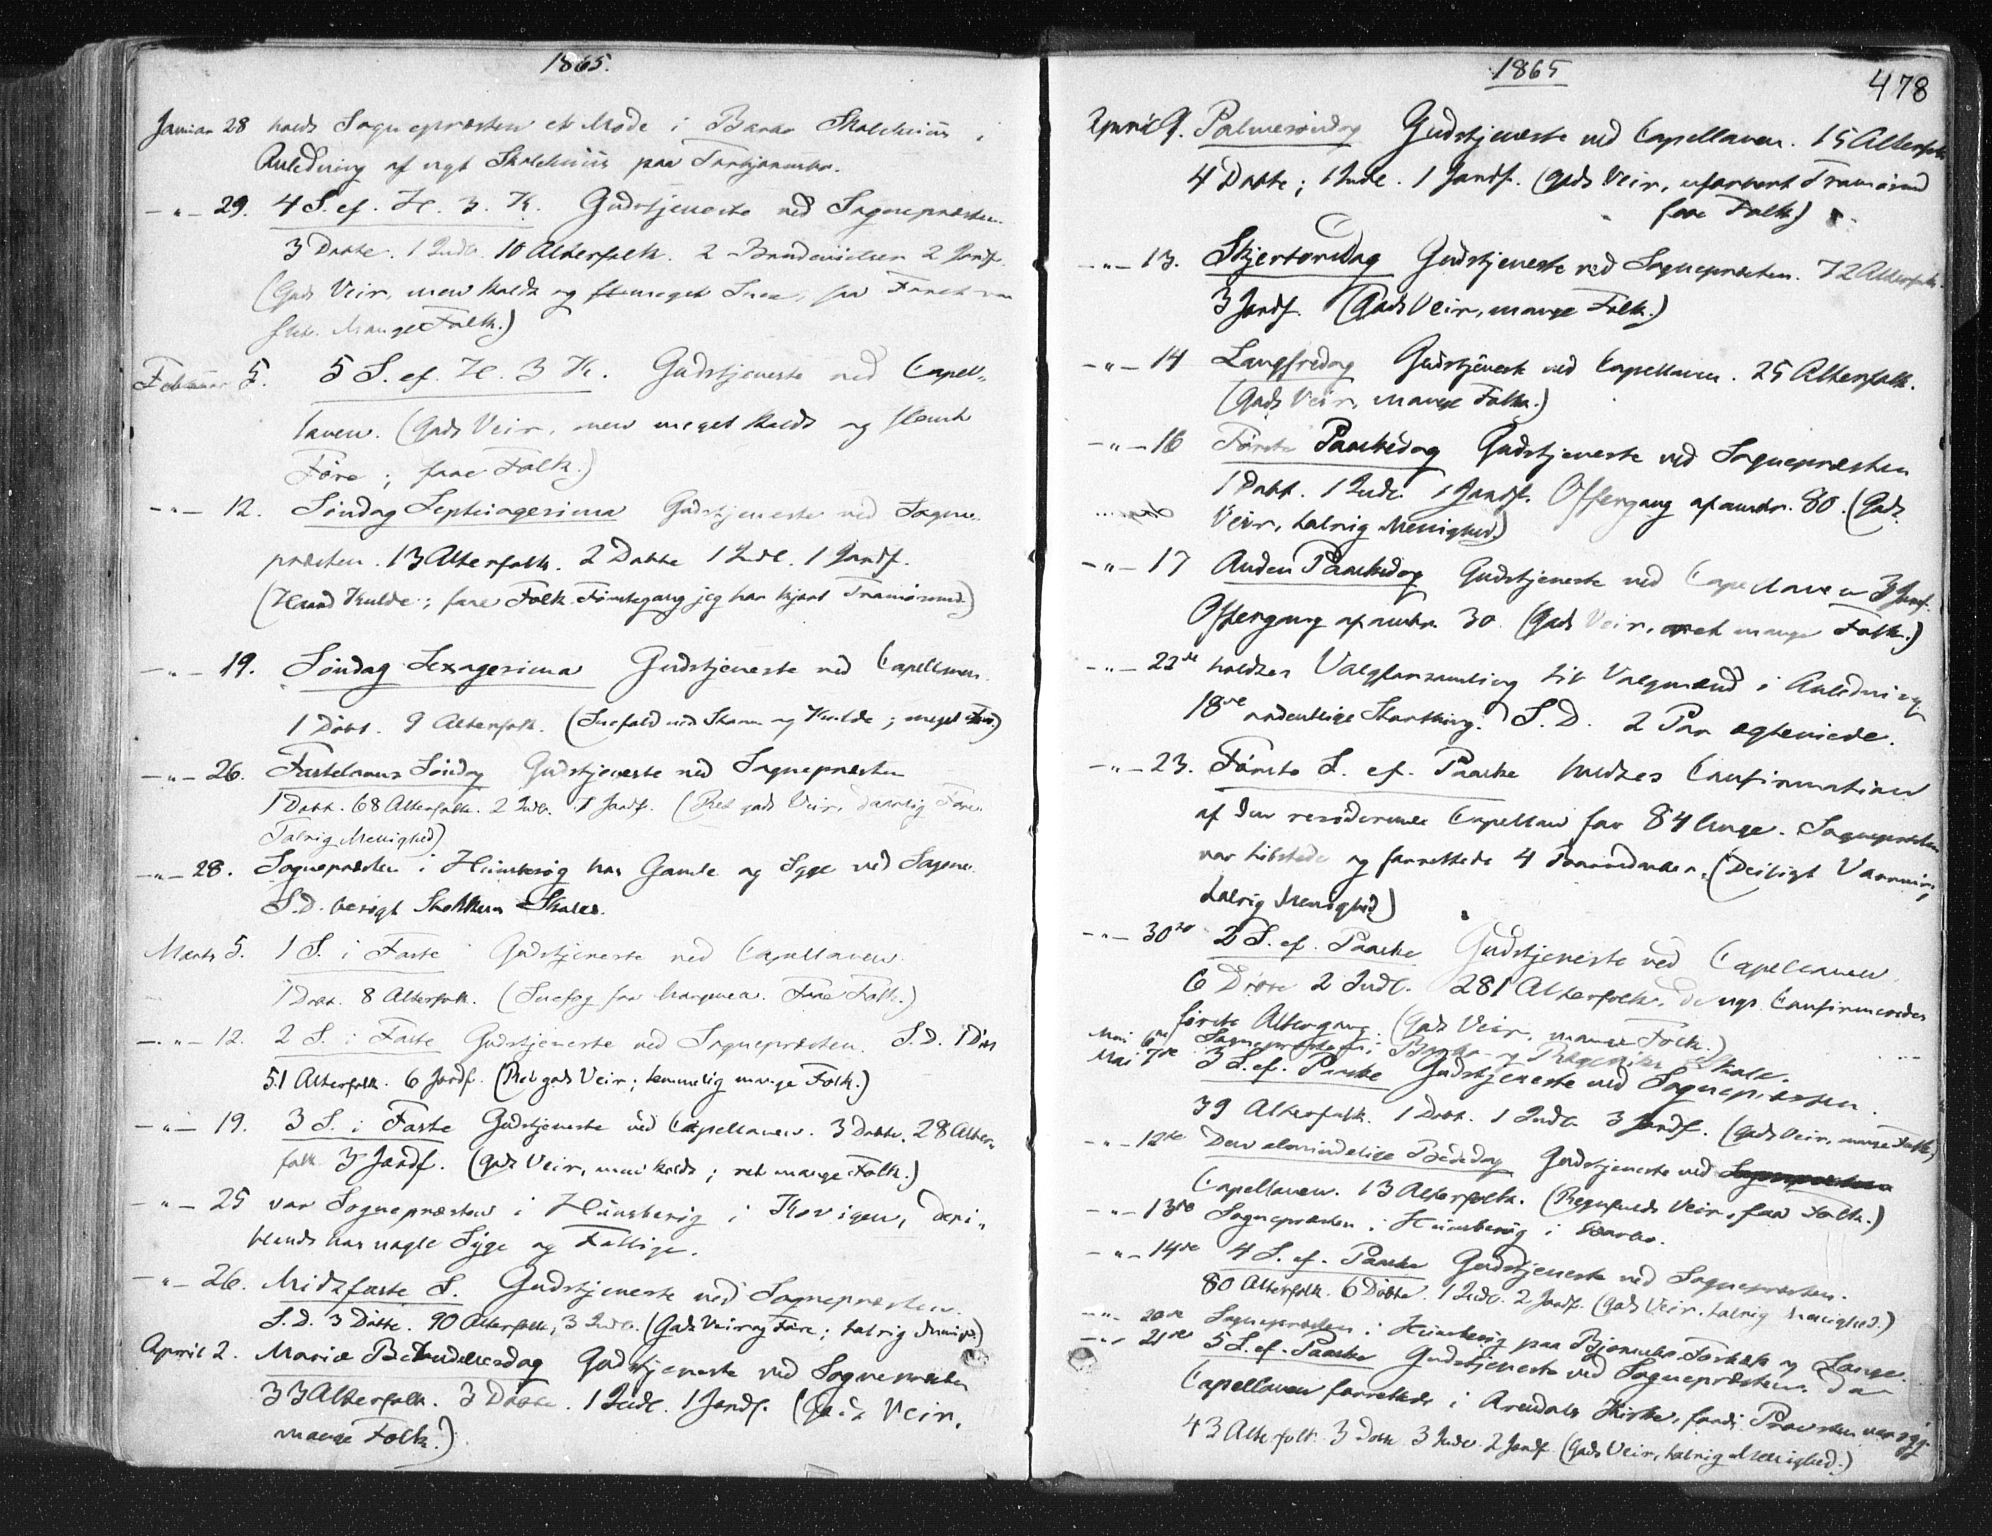 1865.
Januar 28 holdt Sognepræsten et Møde i Barbo Skolehuus i
Anledning af nyt Skolehuus paa
— " — 29. 4 S. ef. H. 3. K. Gudstjeneste ved Sognepræsten.
3 Døbte. 1 Indl. 10 Alterfolk. 2 Brudevielser 2 Jordf.
(Godt Veir, men koldt og meget Snee, saa Føret var
slet. Mange Folk.)
Februar 5. 5 S. ef. H. 3 K. Gudstjeneste ved Capel-
lanen. (Godt Veir, men meget koldt og slemt
Føre; faae Folk.)
— " — 12. Søndag Septuagesima Gudstjeneste ved Sogne-
præsten. 13 Alterfolk. 2 Døbte 1 Indl. 1 Jordf.
(Haard Kulde; faae Folk. Førstegang jeg har kjørt Tromøsund.)
— " — 19. Søndag Sexagesima Gudstjeneste ved Capellanen.
1 Døbt. 9 Alterfolk. (Snefald med Storm og Kulde; meget faae)
— " — 26. Fastelavns Søndag Gudstjeneste ved Sognepræsten
1 Døbt. 68 Alterfolk. 2 Indl. 1 Jordf. (Ret godt Veir, daarlig Føre.
Talrig Menighed)
— " — 28. Sognepræsten i Huusbesøg hos Gamle og Syge ved Sogne
S.D. besøgt Skole.
Marts 5. 1 S. i Faste Gudstjeneste ved Capellanen.
1 Døbt. 8 Alterfolk. (Snefog fra Morgenen. Faae Folk.)
— " — 12. 2 S. i Faste Gudstjeneste ved Sognepræsten. S.D. 1 Døbt
51 Alterfolk. 6 Jordf. (Ret godt Veir; temmelig mange Folk.)
— " — 19. 3 S. i Faste Gudstjeneste ved Capellanen. 3 Døbte. 28 Alter-
folk. 3 Jordf. (Godt Veir, men koldt; ret mange Folk.)
— " — 25 var Sognepræsten i Huusbesøg i Kovigen, deri-
blandt hos nogle Syge og Fattige.
— " — 26. Midfaste S. Gudstjeneste ved Sognepræsten.
S.D. 3 Døbte. 90 Alterfolk, 3 Indl. (Godt Veir og Føre; talrig Menigh.)
April 2. Mariæ Bebudelsesdag Gudstjeneste ved Sognepræsten
33 Alterfolk. 3 Døbte. 1 Indl. 1 Jordf. (Godt Veir,
mange Folk.)
1865
478
April 9. Palmesøndag Gudstjeneste ved Capellanen. 15 Alterfolk
4 Døbte; 1 Indl. 1 Jordf. (Godt Veir, Tromøsund
faae Folk)
— " — 13. Skjertorsdag Gudstjeneste ved Sognepræsten. 72 Alterfolk.
3 Jordf. (Godt Veir, mange Folk.)
— " — 14 Langfredag Gudstjeneste ved Capellanen. 25 Alterfolk.
(Godt Veir, mange Folk.)
— " — 16 Første Paaskedag Gudstjeneste ved Sognepræsten
1 Døbt. 1 Indl. 1 Jordf. Offergang af omtr. 80. (Godt
Veir, talrig Menighed)
— " — 17 Anden Paaskedag Gudstjeneste ved Capellanen 3 Jordf.
Offergang af omtr. 30. (Godt Veir, ret mange Folk.)
— " — 22de holdtes Valgforsamling til Valgmænd i Anledning
18de ordentlige Storthing. S.D. 2 Par ægteviede.
— " — 23. Første S. ef. Paaske holdtes Confirmation
af den residerende Capellan for 84 Unge. Sognepræsten
var tilstede og forrettede 4 (Deiligt Vaarveir,
talrig Menighed)
— " — 30te 2 S. ef. Paaske Gudstjeneste ved Capellanen
6 Døbte 2 Indl. 281 Alterfolk, de nys Confirmeredes
første Altergang. (Godt Veir, mange Folk.)
Mai 6te Sognepræsten i Barbo og Skole.
Mai 7de 3 S. ef. Paaske Gudstjeneste ved Sognepræsten.
39 Alterfolk. 1 Døbt. 1 Indl. 3 Jordf. (Godt Veir, mange Folk.)
— " — 12te Den almindelige Bededag Gudstjeneste ved
Capellanen. 13 Alterfolk. (Regnfuldt Veir, faa Folk.)
— " — 13de Sognepræsten i Huusbesøg i Barbo.
— " — 14de 4 S. ef. Paaske Gudstjeneste ved Sognepræsten.
80 Alterfolk. 6 Døbte. 1 Indl. 2 Jordf. (Godt Veir. talrig Menighed.)
— " — 20de Sognepræsten i Huusbesøg paa og Longe.
— " — 21de 5 S. ef. Paaske Gudstjeneste ved Sognepræsten. Da
Capellanen forrettede i Arendals Kirke, fordi Provsten var syg.
43 Alterfolk. 3 Døbte 3 Indl. 2 Jordf. (Godt Veir, talrig Menighed.)